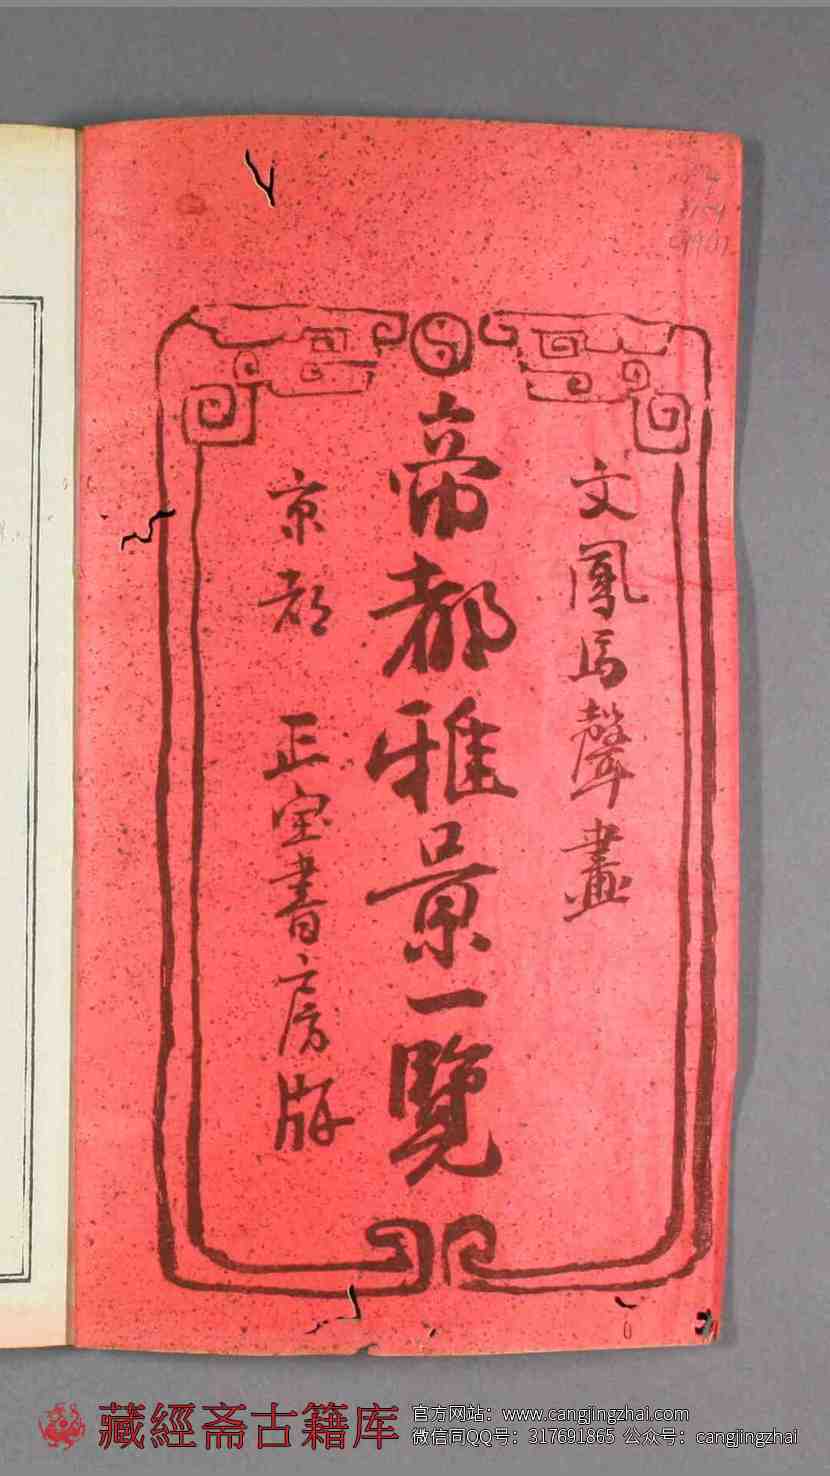 文鳳馬聲畫
帝都雅景一覽
京都 正宝書房版
藏經斋古籍库
官方网站：www.cangjingzhai.com
微信同QQ号：317691865 公众号：cangjingzhai